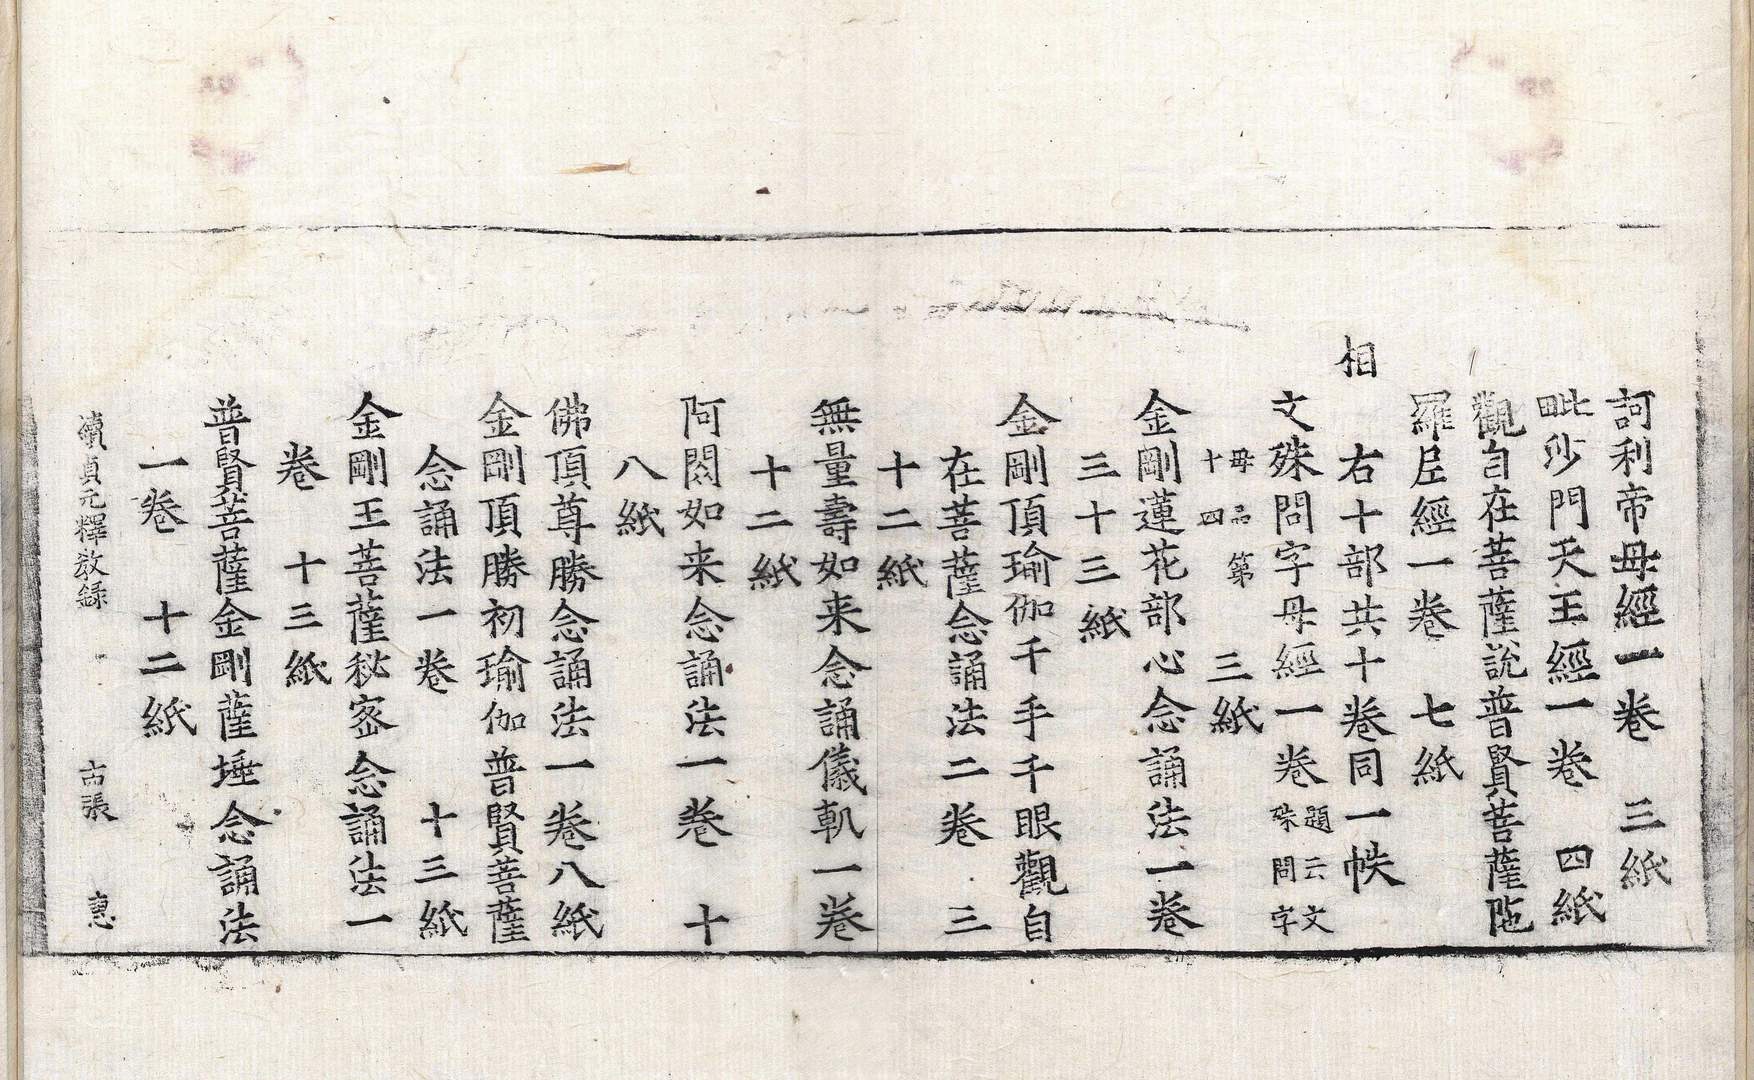 訶利帝母經一卷　三紙
毗沙門天王經一卷　四紙
觀自在菩薩說普賢菩薩陁
羅尼經一卷　七紙
相　右十部共十卷同一帙
文殊問字母經一卷題云文殊問字
母品第十四　三紙
金剛蓮花部心念誦法一卷
三十三紙
金剛頂瑜伽千手千眼觀自
在菩薩念誦法二卷　三
十二紙
無量壽如来念誦儀軌一卷
十二紙
阿閦如来念誦法一卷　十
八紙
佛頂尊勝念誦法一卷八紙
金剛頂勝初瑜伽普賢菩薩
念誦法一卷　十三紙
金剛王菩薩秘密念誦法一
卷　十三紙
普賢菩薩金剛薩埵念誦法
一卷　十二紙
續貞元釋教録　張　惠